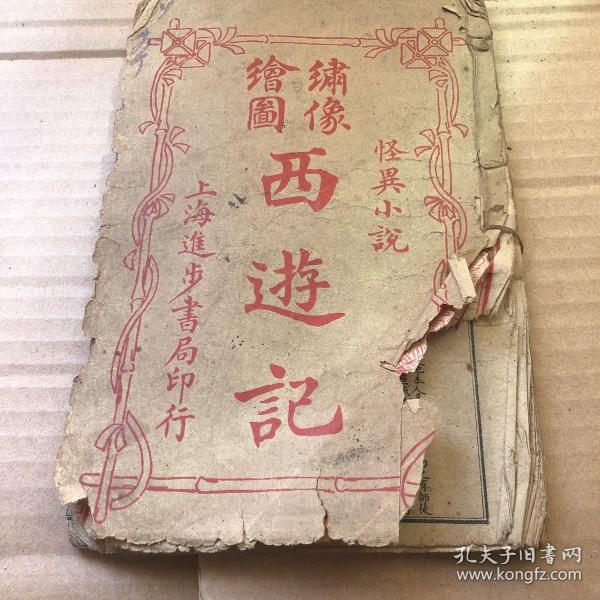 繡像
繪圖
怪異小說
西遊記
上海進步書局印行
孔夫子旧书网
www.kongfz.com